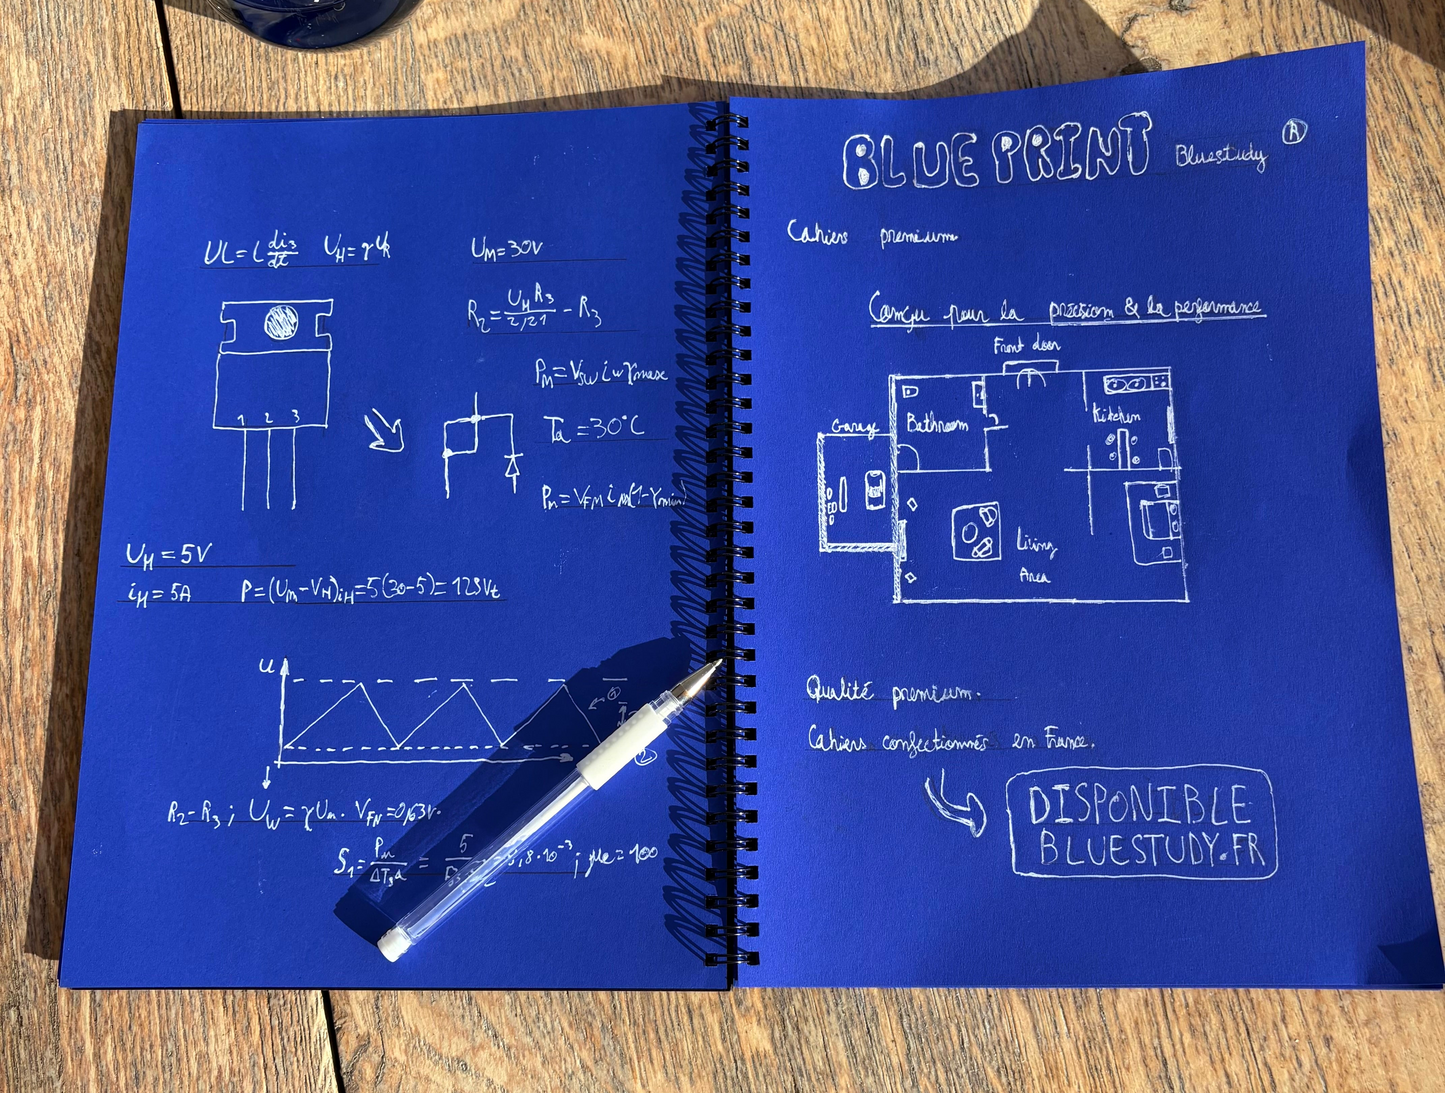 UL = L di3/dt   UH = γ UR
UM = 30V
R2 = UH R3 / 2,21 - R3
PM = VSW iW γmax
1 2 3
Ta = 30°C
UH = 5V
iH = 5A   P = (Um - VH)iH = 5(30-5) = 125Vt
U
2
R2 - R3 ; UW = γ Um . VFN = 0,63V.
S1 = Pm / ΔT3a = 5
,8·10⁻³ ; μe = 100
BLUE PRINT Bluestudy R
Cahiers premium
Conçu pour la précision & la performance
Front door
Bathroom
Kitchen
Garage
Living
Area
Qualité premium.
Cahiers confectionnés en France.
DISPONIBLE
BLUESTUDY.FR